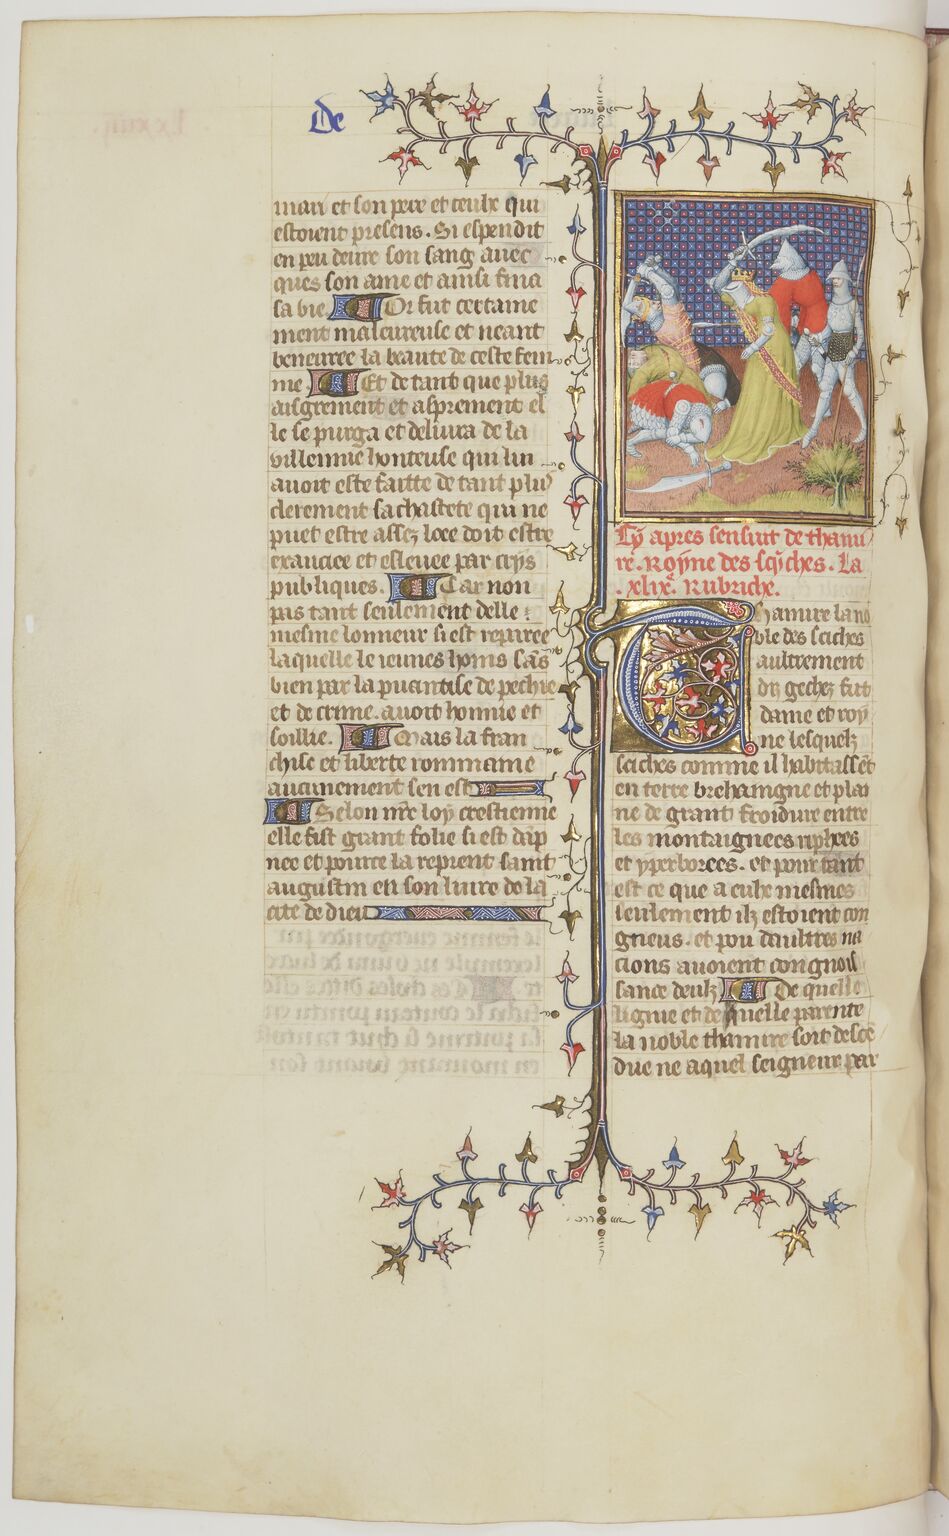 De
mari et son pere et ceulx qui
estoient presens. Si espendit
en peu deure son sang avec
ques son ame et ainsi fina
sa vie. Or fut certaine
ment maleureuse et neant
beneuree la beaute de ceste fem
me. Et de tant que plus
aisgrement et asprement el
le se purga et delivra de la
villennie honteuse qui lui
avoit este faitte de tant plus
clerement sa chastete qui ne
puet estre assez loee doit estre
exaucee et eslevee par crys
publiques. Car non
pas tant seulement delle
mesme lonneur si est reparee
laquelle le jeunes homs sans
bien par la puantise de pechie
et de crime. avoit honnie et
soillie. Mais la fran
chise et liberte rommaine
aucunement sen est
Selon nre loy crestienne
elle fist grant folie si est dāp
nee et pource la reprent saint
augustin en son livre de la
cite de dieu
Cy apres sensuit de thami
re. Royne des sciches. La
.xlix.e Rubriche.
Thamire la no
ble des sciches
aultrement
dis gechez fut
dame et roy
ne lesquelz
sciches comme il habitassēt
en terre brehaingne et plai
ne de grant froidure entre
les montaignees riphees
et yperborees. et pour tant
est ce que a eulx mesmes
seulement ilz estoient con
gneus. et pou daultres na
cions avoient congnois
sance deulz. De quelle
lignie et de quelle parente
la noble thamire soit descē
due ne a quel seigneur par